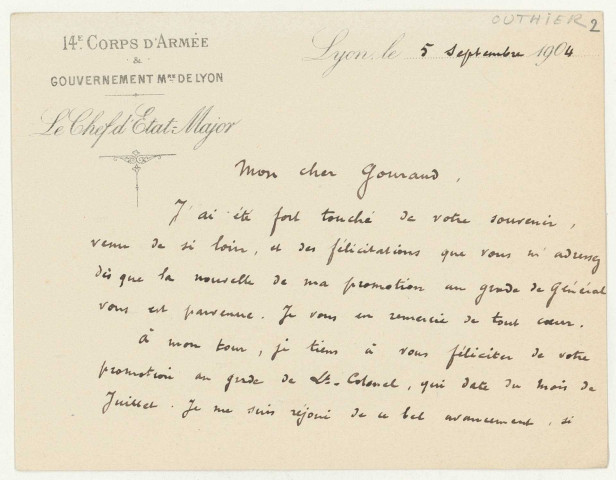 OUTHIER 2
14E. CORPS D'ARMÉE
&
GOUVERNEMENT MRE DE LYON
Le Chef d'Etat-Major
Lyon, le 5 Septembre 1904
Mon cher Gouraud,
J'ai été fort touché de votre souvenir,
venu de si loin, et des félicitations que vous m'adressez
dès que la nouvelle de ma promotion au grade de Général
vous est parvenue. Je vous en remercie de tout cœur.
À mon tour, je tiens à vous féliciter de votre
promotion au grade de Lt-Colonel, qui date du mois de
Juillet. Je me suis réjoui de ce bel avancement, si